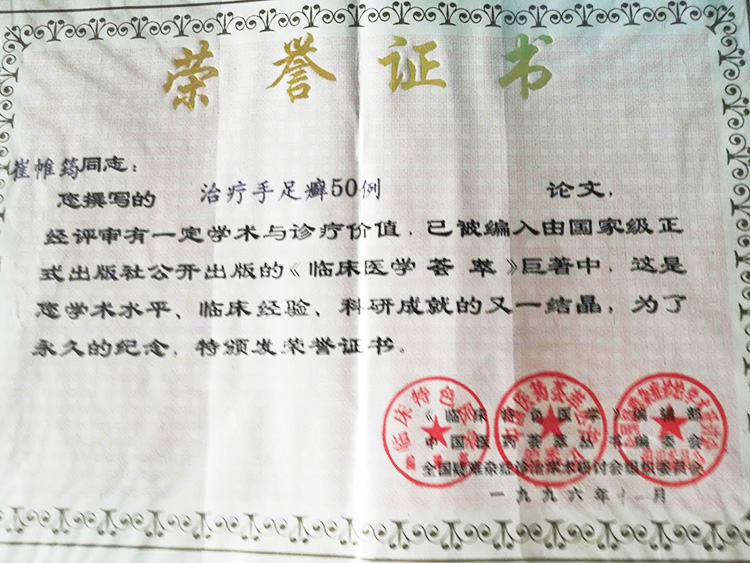 荣誉证书
崔帷筠同志：
您撰写的 治疗手足癣50例 论文，
经评审有一定学术与诊疗价值，已被编入由国家级正
式出版社公开出版的《临床医学荟萃》巨著中，这是
您学术水平、临床经验、科研成就的又一结晶，为了
永久的纪念，特颁发荣誉证书。
《临床特色医学》编辑部
中国医药荟萃丛书编委会
全国疑难杂症诊治学术研讨会组织委员会
一九九六年十一月